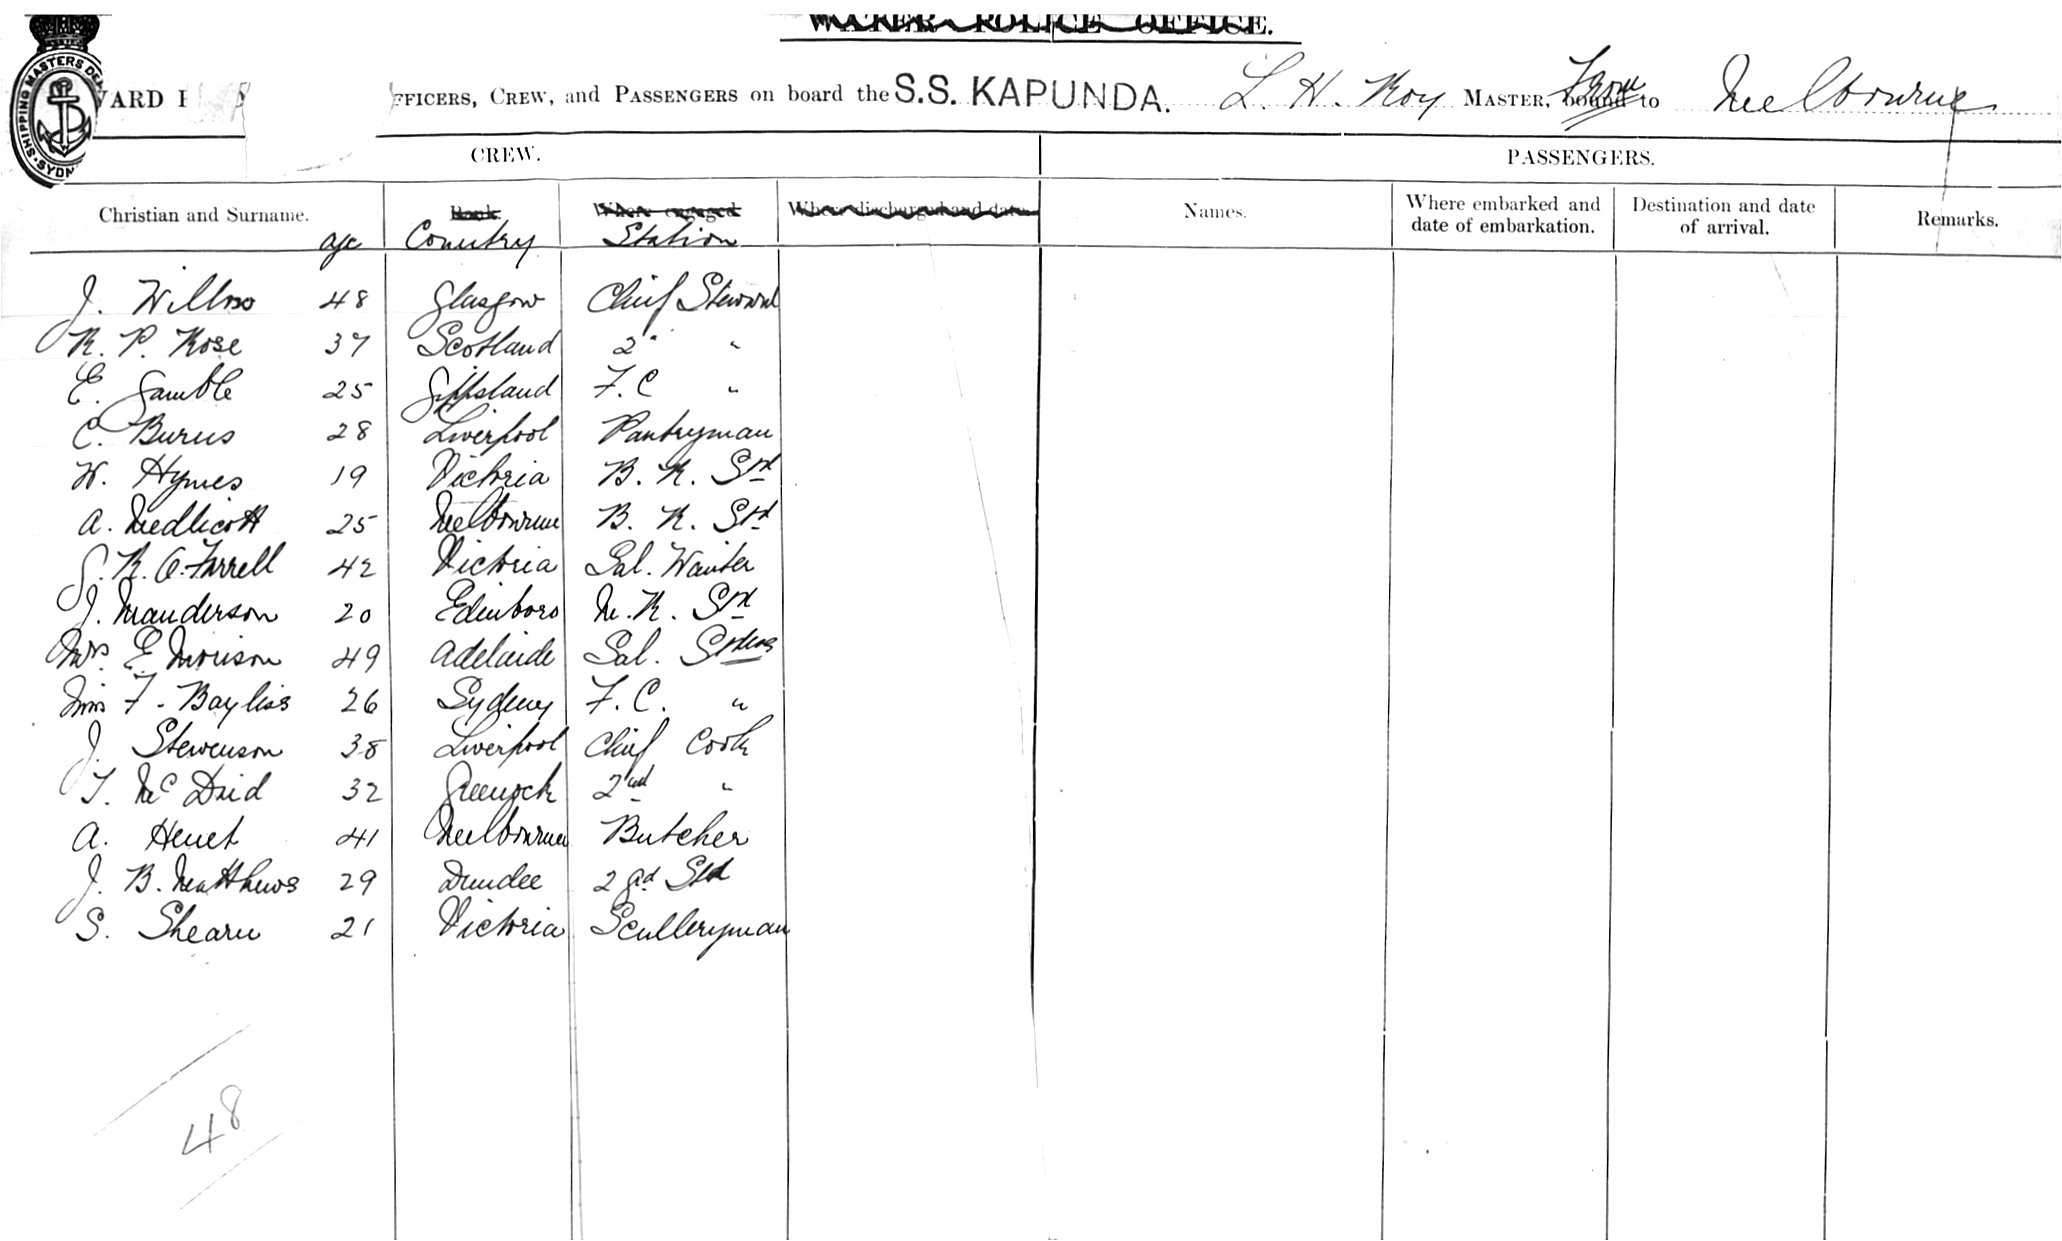 WATER POLICE OFFICE.
SHIPPING MASTERS SYDN
WARD OFFICERS, CREW, and PASSENGERS on board the S.S. KAPUNDA. L. H. Roy MASTER, bound to From Melbourne
CREW. PASSENGERS.
Christian and Surname. age Rank. Country Where engaged Station Where discharged and date. Names. Where embarked and date of embarkation. Destination and date of arrival. Remarks.
J. 48 Glasgow Chief Steward
R. P. Rose 37 Scotland 2 " "
E. Gamble 25 Gippsland F. C "
C. Burns 28 Liverpool Pantryman
W. Hymes 19 Victoria B. R. Std
A. Medlicott 25 Melbourne B. R. Std
G. R. O.Farrell 42 Victoria Sal. Waiter
J. Manderson 20 Edinboro M. R. Std
Mrs E. Morison 49 Adelaide Sal. Stdess
Miss F. Bayliss 26 Sydney F. C. "
J. Stevenson 38 Liverpool Chief Cook
T. McDaid 32 Greenock 2nd "
A. Henet 41 Melbourne Butcher
J. B. Matthews 29 Dundee 2 gd Std
S. Shearn 21 Victoria Sculleryman
48